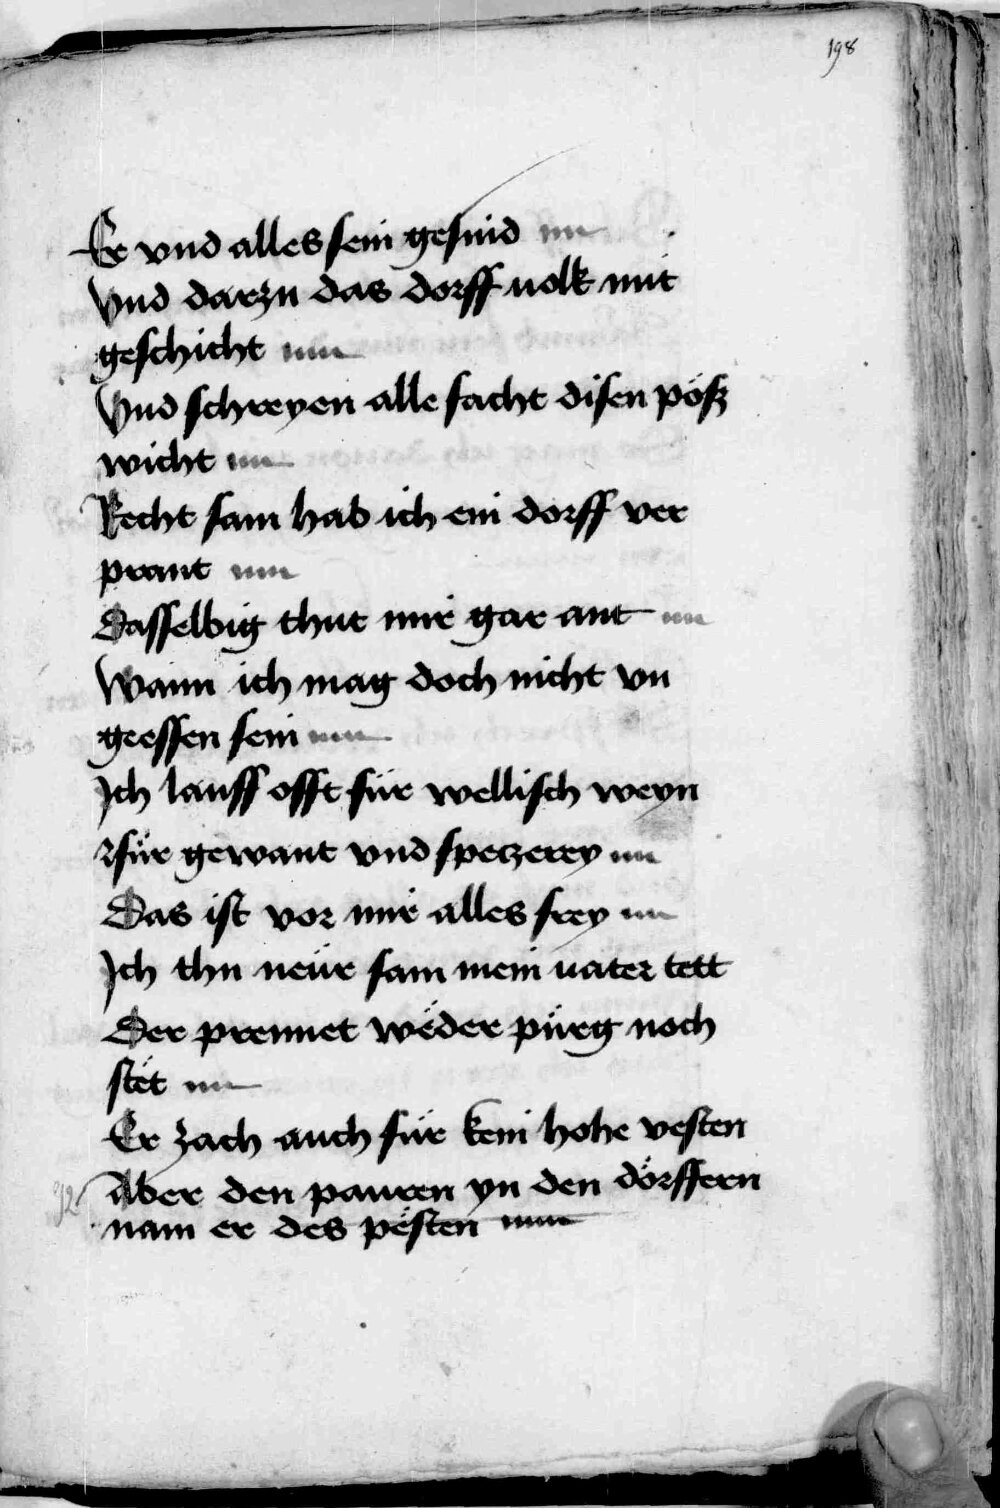 198
Er vnd alles sein gesind
Vnd darzu das dorff uolk mit
geschicht
Vnd schreyen alle facht disen pöß
wicht
Recht sam hab ich ein dorff ver
prant
Dasselbig thut mir gar ant
Wann ich mag doch nicht vn
geessen sein
Ich lauff offt für wellisch weyn
für gewant vnd speczerey
Das ist vor mir alles frey
Ich thu neür sam mein uater tett
Der prennet wёder pürg noch
stёt
Er zach auch für kein hohe vesten
Aber den pauren yn den dörffern
nam er des pёsten